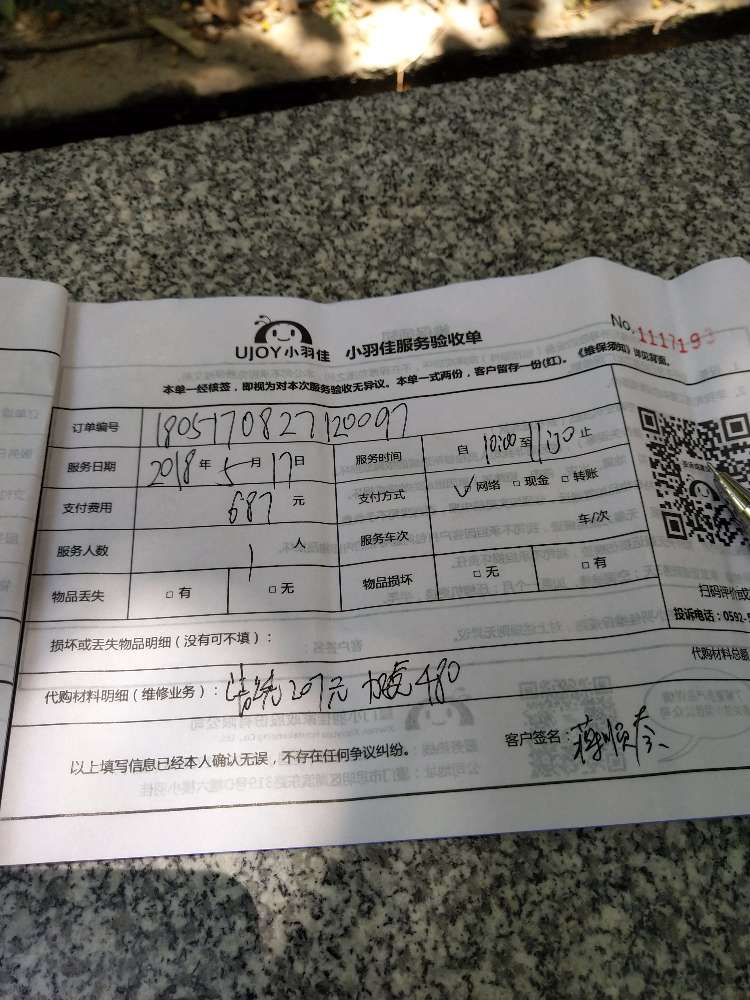 UJOY小羽佳 小羽佳服务验收单
No. 1117193
本单一经核签，即视为对本次服务验收无异议。本单一式两份，客户留存一份(红)。《维保须知》详见背面。
订单编号 1805170827120097
服务日期 2018年5月17日 服务时间 自10:00至11:30止
支付费用 687元 支付方式 ✓网络 □现金 □转账
服务人数 1人 服务车次 车/次
物品丢失 □有 □无 物品损坏 □无 □有
扫码评价或
投诉电话：0592-5
损坏或丢失物品明细（没有可不填）：
代购材料总额
代购材料明细（维修业务）： 207元 480
以上填写信息已经本人确认无误，不存在任何争议纠纷。 客户签名：